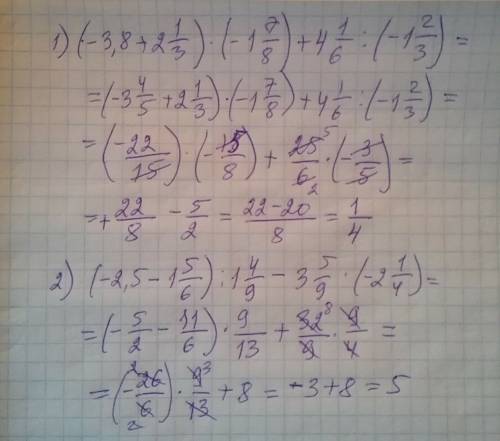 1) (-3,8+2 1/3)·(-1 7/8)+4 1/6:(-1 2/3)=
=(-3 4/5+2 1/3)·(-1 7/8)+4 1/6:(-1 2/3)=
=(-22/15)·(-15/8)+25⁵/6₂·(-3/5)=
=+22/8-5/2=22-20/8=1/4
2) (-2,5-1 5/6):1 4/9-3 5/9·(-2 1/4)=
=(-5/2-11/6)·9/13+32⁸/9·9/4=
=(-²26/6₂)·9³/13+8=-3+8=5